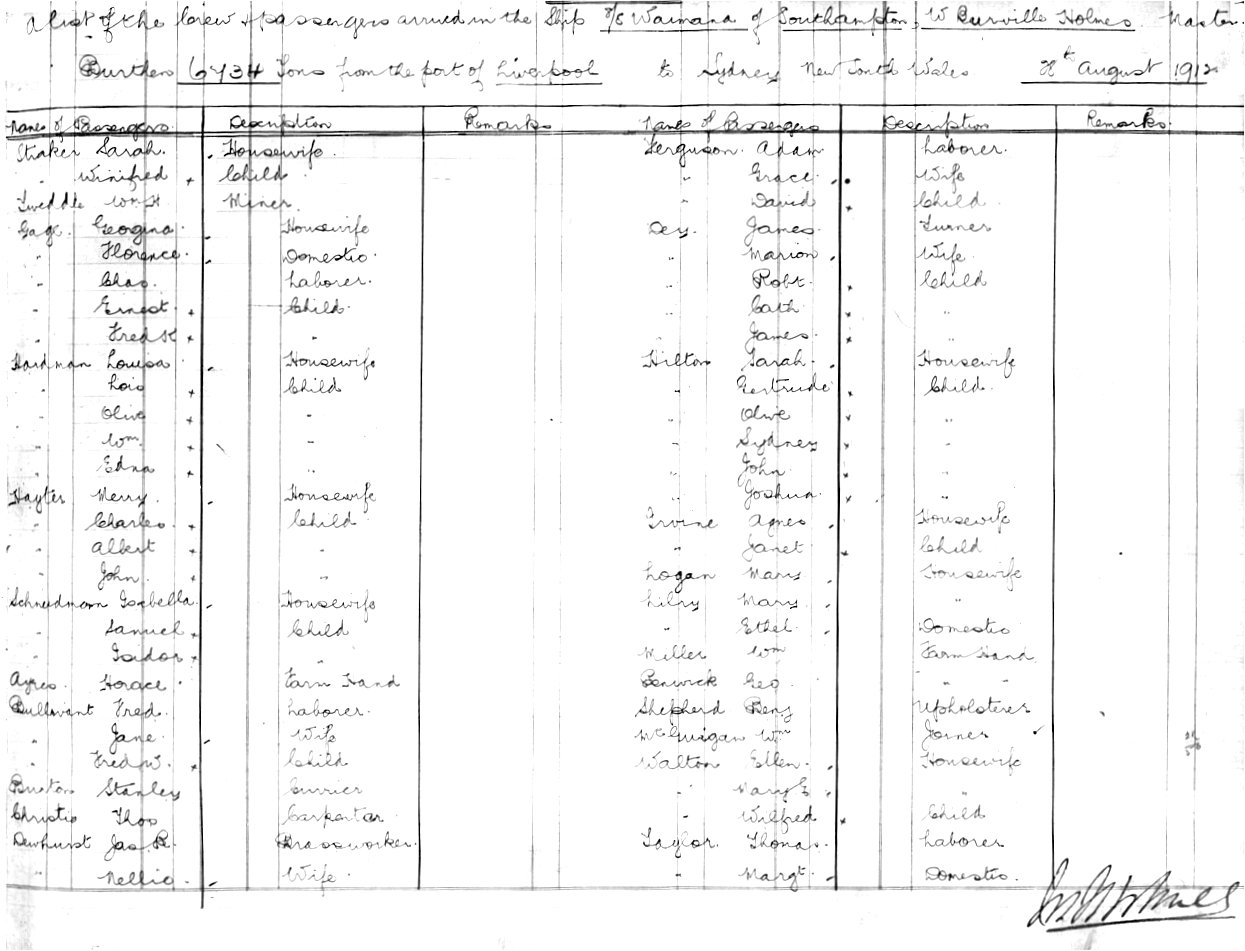 A list of the Crew & passengers arrived in the Ship S/S Waimana of Southampton, W Burville Holmes Master
Burthen 6734 Tons from the port of Liverpool to Sydney New South Wales 28th August 1912
Names of Passengers Description Remarks Names of Passengers Description Remarks
Straker Sarah. Housewife. Ferguson. Adam. Laborer.
" Winifred Child " Grace Wife
Tweddle Wm H Miner. " David Child
Gage. Georgina. Housewife Dey. James. Turner
" Florence. Domestic. " Marion Wife
" Chas. Laborer. " Robt. Child
" Ernest Child. " Cath "
" Fredk " " James "
Hardman Louisa Housewife Hilton Sarah. Housewife
" Lois Child " Gertrude Child.
" Olive " " Olive "
" Wm. " " Sydney "
" Edna " " John "
Hayter Merry. Housewife " Joshua. "
" Charles. Child. Irvine Agnes Housewife
" Albert " " Janet Child
" John. " Logan Mary Housewife
Schneidmann Isabella. Housewife Mary. "
" Samuel Child " Ethel. Domestic
" Isidor " Miller Wm Farm Hand
Ayres. Horace Farm Hand Geo " "
Bullivant Fred. Laborer. Shepherd Benj Upholsterer
" Jane Wife McGuigan Wm Joiner
" Fred W. Child Walton Ellen. Housewife
Burton Stanley Currier " Mary E "
Christie Thos Carpentar " Wilfred Child
Dewhurst Jas R. Brassworker. Taylor. Thomas. Laborer
" Nellie Wife. " Margt Domestic.